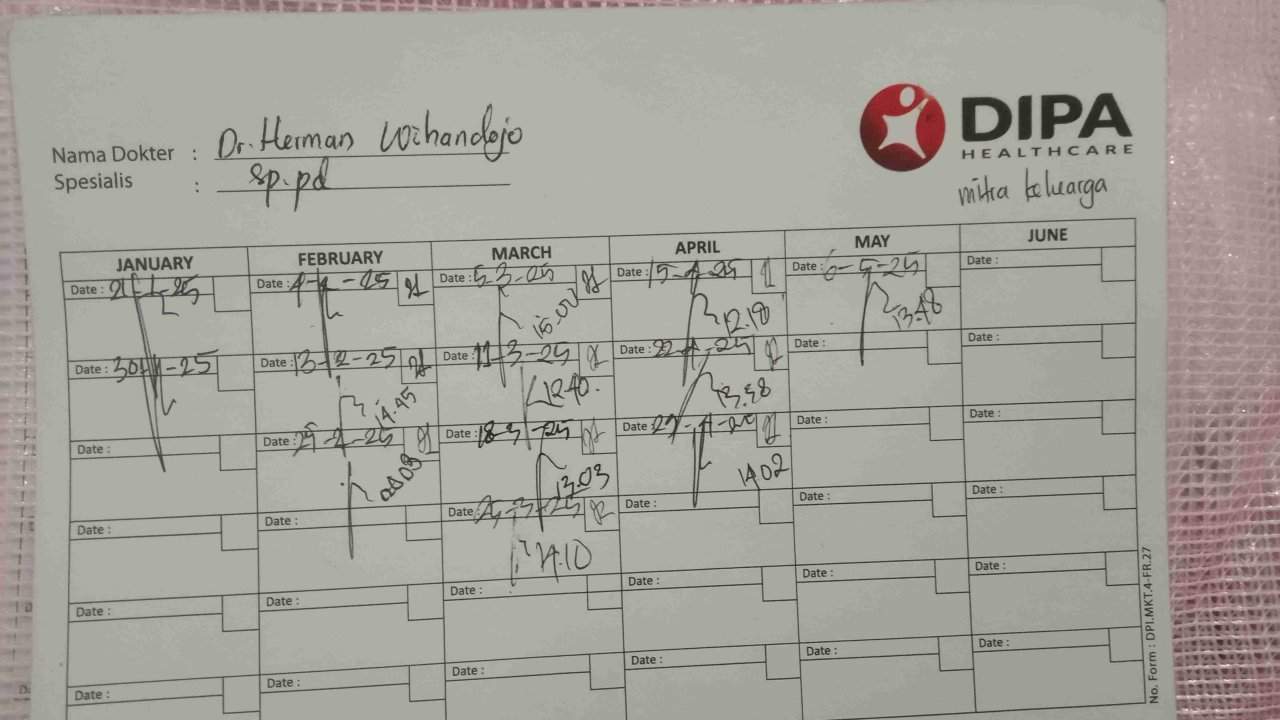 DIPA
HEALTHCARE
mitra keluarga
Nama Dokter : Dr. Herman Wihandojo
Spesialis : Sp.pd
JANUARY FEBRUARY MARCH APRIL MAY JUNE
Date : 21-1-25 Date : 4-2-25 Date : 5-3-25 Date : 15-4-25 Date : 6-5-25 Date :
15.00 12.19 13.48
Date : 30-1-25 Date : 13-2-25 Date : 11-3-25 Date : 22-4-25 Date : Date :
14.45 12.40. 13.58
Date : Date : 25-2-25 Date : 18-3-25 Date : 29-4-25 Date : Date :
13.03 14.02
Date : Date : Date : 25-3-25 Date : Date : Date :
14.10
Date : Date : Date : Date : Date : Date :
Date : Date : Date : Date : Date : Date :
No. Form : DPI.MKT.4-FR.27